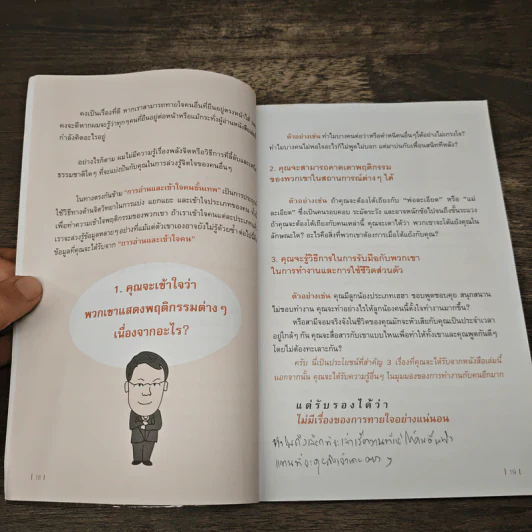 คงเป็นเรื่องที่ดี หากเราสามารถทายใจคนอื่นที่ยืนอยู่ตรงหน้าได้
คงจะดีหากผมจะรู้ว่าทุกๆคนที่ยืนอยู่ต่อหน้าหรือแม้กระทั่งผู้อ่านหนังสือ
กำลังคิดอะไรอยู่
อย่างไรก็ตาม ผมไม่มีความรู้เรื่องพลังจิตหรือวิธีการที่ลี้ลับ
ธรรมชาติใดๆ ที่จะแบ่งปันกับคุณในการล่วงรู้จิตใจของคนอื่นๆ
ในทางตรงกันข้าม "การอ่านและเข้าใจคนขั้นเทพ" เป็นการ
ใช้วิธีทางด้านจิตวิทยาในการแบ่ง แยกแยะ และเข้าใจประเภทของคน
เพื่อทำความเข้าใจพฤติกรรมของพวกเขา ถ้าเราเข้าใจคนแต่ละประเภท
เราจะล่วงรู้ข้อมูลหลายๆ อย่างที่แม้แต่ตัวเขาเองอาจยังไม่รู้ด้วยซ้ำ ต่อไปนี้
ข้อมูลที่คุณจะได้รับจาก "การอ่านและเข้าใจคน"
1. คุณจะเข้าใจว่า
พวกเขาแสดงพฤติกรรมต่างๆ
เนื่องจากอะไร?
| 18 |
ตัวอย่างเช่น ทำไมบางคนต่อว่าหรือตำหนิคนอื่นๆ ได้อย่างไม่เกรงใจ?
ทำไมบางคนไม่พอใจอะไรก็ไม่พูดไม่บอก แต่มาบ่นกับเพื่อนสนิททีหลัง?
2. คุณจะสามารถคาดเดาพฤติกรรม
ของพวกเขาในสถานการณ์ต่างๆ ได้
ตัวอย่างเช่น ถ้าคุณจะต้องโต้เถียงกับ "พ่อละเอียด" หรือ "แม่
ละเอียด" ซึ่งเป็นคนรอบคอบ ระมัดระวัง และอาจหนักข้อไปจนถึงขั้นระแวง
ถ้าคุณจะต้องโต้เถียงกับคนเหล่านี้ คุณจะเดาได้ว่า พวกเขาจะโต้แย้งคุณใน
ลักษณะใด? อะไรคือสิ่งที่พวกเขาต้องการเมื่อโต้แย้งกับคุณ?
3. คุณจะรู้วิธีการในการรับมือกับพวกเขา
ในการทำงานและการใช้ชีวิตส่วนตัว
ตัวอย่างเช่น คุณมีลูกน้องประเภทเฮฮา ชอบพูดชอบคุย สนุกสนาน
ไม่ชอบทำงาน คุณจะทำอย่างไรให้ลูกน้องคนนี้ตั้งใจทำงานมากขึ้น?
หรือสามีจอมจริงจังในชีวิตของคุณมักจะหัวเสียกับคุณเป็นประจำเวลา
อยู่ใกล้ๆ กัน คุณจะสื่อสารกับเขาแบบไหนเพื่อทำให้ทั้งเขาและคุณพูดกันดีๆ
โดยไม่ต้องทะเลาะกัน?
ครับ นี่เป็นประโยชน์ที่สำคัญ 3 เรื่องที่คุณจะได้รับจากหนังสือเล่มนี้
นอกจากนั้น คุณจะได้รับความรู้อื่นๆ ในมุมมองของการทำงานกับคนอีกมาก
แต่รับรองได้ว่า
ไม่มีเรื่องของการทายใจอย่างแน่นอน
| 19 |